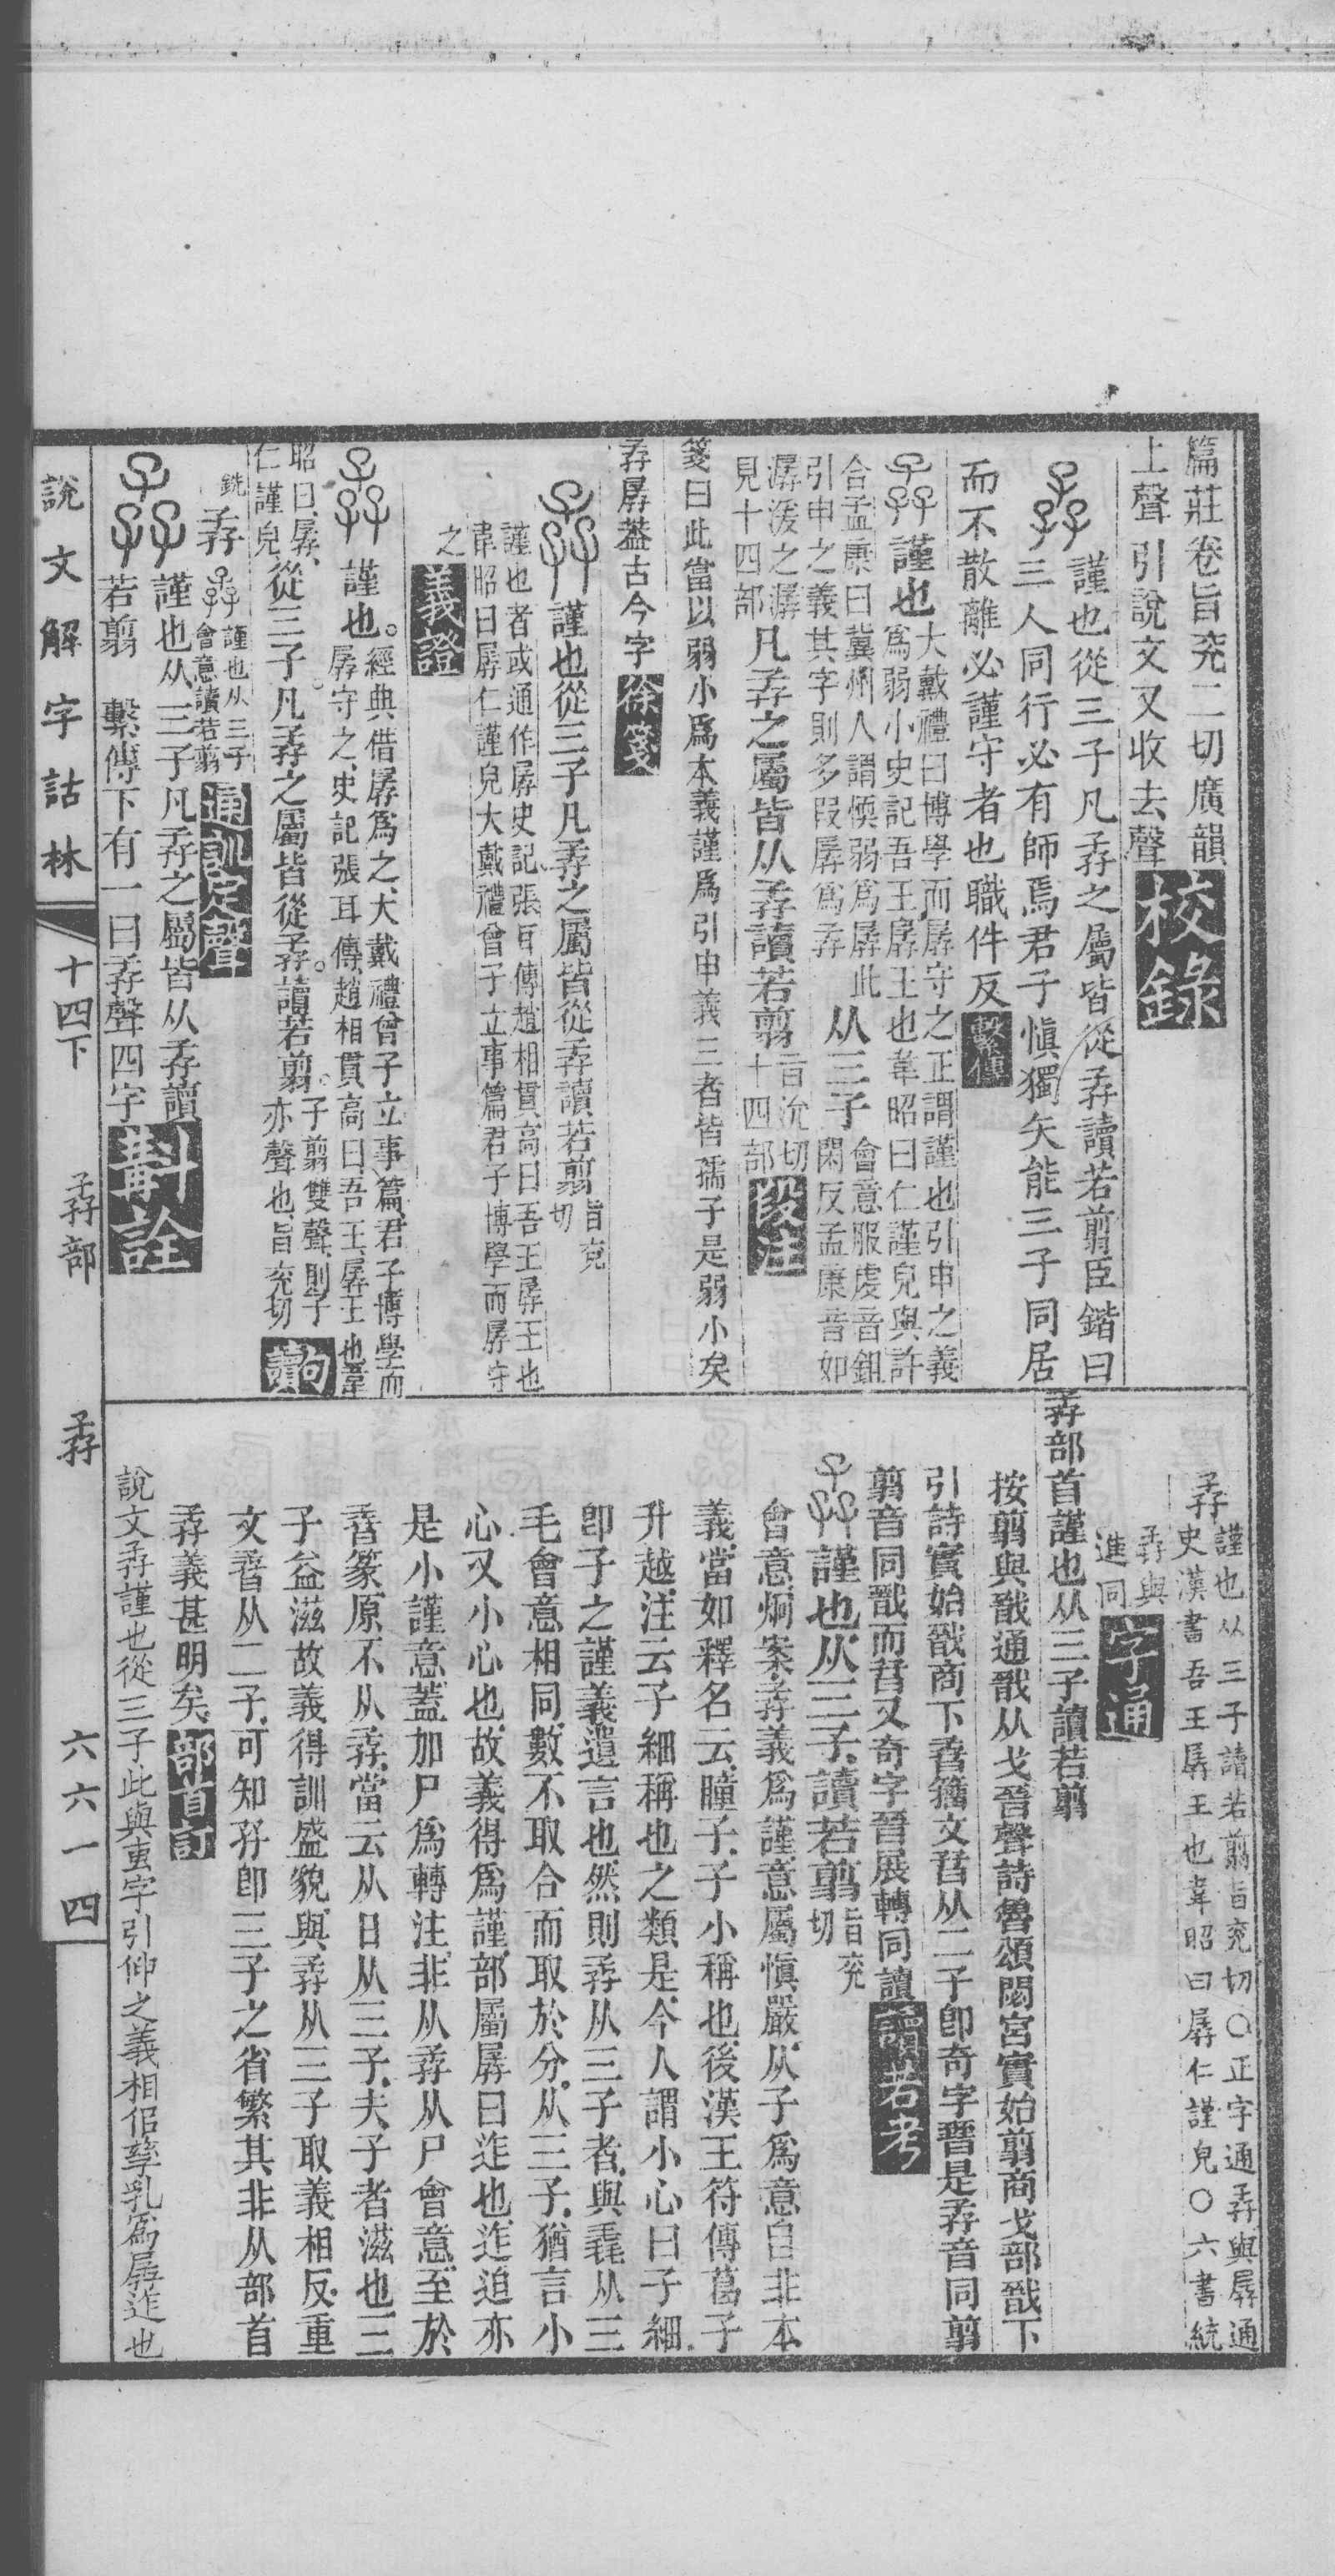 篇莊卷旨兖二切廣韻
上聲引說文又收去聲校錄
謹也從三子凡孨之屬皆從孨讀若翦臣鍇曰
三人同行必有師焉君子愼獨矣能三子同居
而不散離必謹守者也職件反繫傳
謹也大戴禮曰博學而孱守之正謂謹也引申之義
爲弱小史記吾王孱王也韋昭曰仁謹皃與許
合孟康曰冀州人謂愞弱爲孱此
引申之義其字則多叚孱爲孨从三子會意服虔音鉏
閑反孟康音如
潺湲之潺
見十四部凡孨之屬皆从孨讀若翦旨沇切
十四部段注
箋曰此當以弱小爲本義謹爲引申義三者皆孺子是弱小矣
孨孱葢古今字徐箋
謹也從三子凡孨之屬皆從孨讀若翦旨兖
切
謹也者或通作孱史記張耳傳趙相貫高曰吾王孱王也
韋昭曰孱仁謹皃大戴禮曾子立事篇君子博學而孱守
之義證
謹也。經典借孱爲之、大戴禮曾子立事篇、君子博學而
孱守之、史記張耳傳、趙相貫高曰、吾王、孱王也、韋
昭曰、孱、
仁謹皃從三子。凡孨之屬皆從孨。讀若翦。子翦雙聲、則子
亦聲也、旨兖切句讀
銑孨謹也从三子
會意讀若翦通訓定聲
謹也从三子凡孨之屬皆从孨讀
若翦 繫傳下有一曰孨聲四字斠詮
說文解字詁林 十四下 孨部 孨 六六一四
孨謹也从三子讀若翦旨兖切○正字通孨與孱通
史漢書吾王孱王也韋昭曰孱仁謹皃○六書統
孨與
進同字通
孨部首謹也从三子讀若翦
按翦與戩通戩从戈晉聲詩魯頌閟宮實始翦商戈部戩下
引詩實始戩商下孴籒文孴从二子卽奇字㬜是孨音同翦
翦音同戩而孴又奇字晉展轉同讀讀若考
謹也从三子讀若翦旨兖
切
會意炯案孨義爲謹意屬愼嚴从子爲意自非本
義當如釋名云瞳子子小稱也後漢王符傳葛子
升越注云子細稱也之類是今人謂小心曰子細
卽子之謹義遺言也然則孨从三子者與毳从三
毛會意相同數不取合而取於分从三子猶言小
心又小心也故義得爲謹部屬孱曰迮也迮迫亦
是小謹意蓋加尸爲轉注非从孨从尸會意至於
孴篆原不从孨當云从日从三子夫子者滋也三
子益滋故義得訓盛貌與孨从三子取義相反重
文㬜从二子可知孖卽三子之省繁其非从部首
孨義甚明矣部首訂
說文孨謹也從三子此與䖵字引伸之義相佀孳乳爲孱迮也